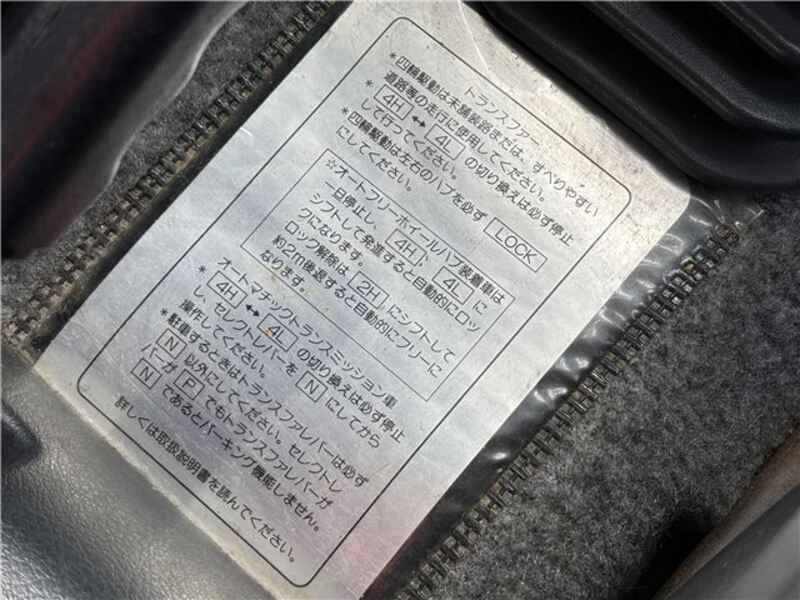 トランスファー
*四輪駆動は未舗装路または、すべりやすい
道路等の走行に使用してください。
* 4H ↔ 4L の切り換えは必ず停止
して行ってください。
*四輪駆動は左右のハブを必ず LOCK
にしてください。
☆オートフリーホイールハブ装着車は
一旦停止し、 4H 、 4L に
シフトして発進すると自動的にロッ
クになります。
ロック解除は 2H にシフトして
約2m後退すると自動的にフリーに
なります。
オートマチックトランスミッション車
* 4H ↔ 4L の切り換えは必ず停止
し、セレクトレバーを N にしてから
操作してください。
*駐車するときはトランスファレバーは必ず
N 以外にしてください。セレクトレ
バーが P でもトランスファレバーが
N であるとパーキング機能しません。
詳しくは取扱説明書を読んでください。